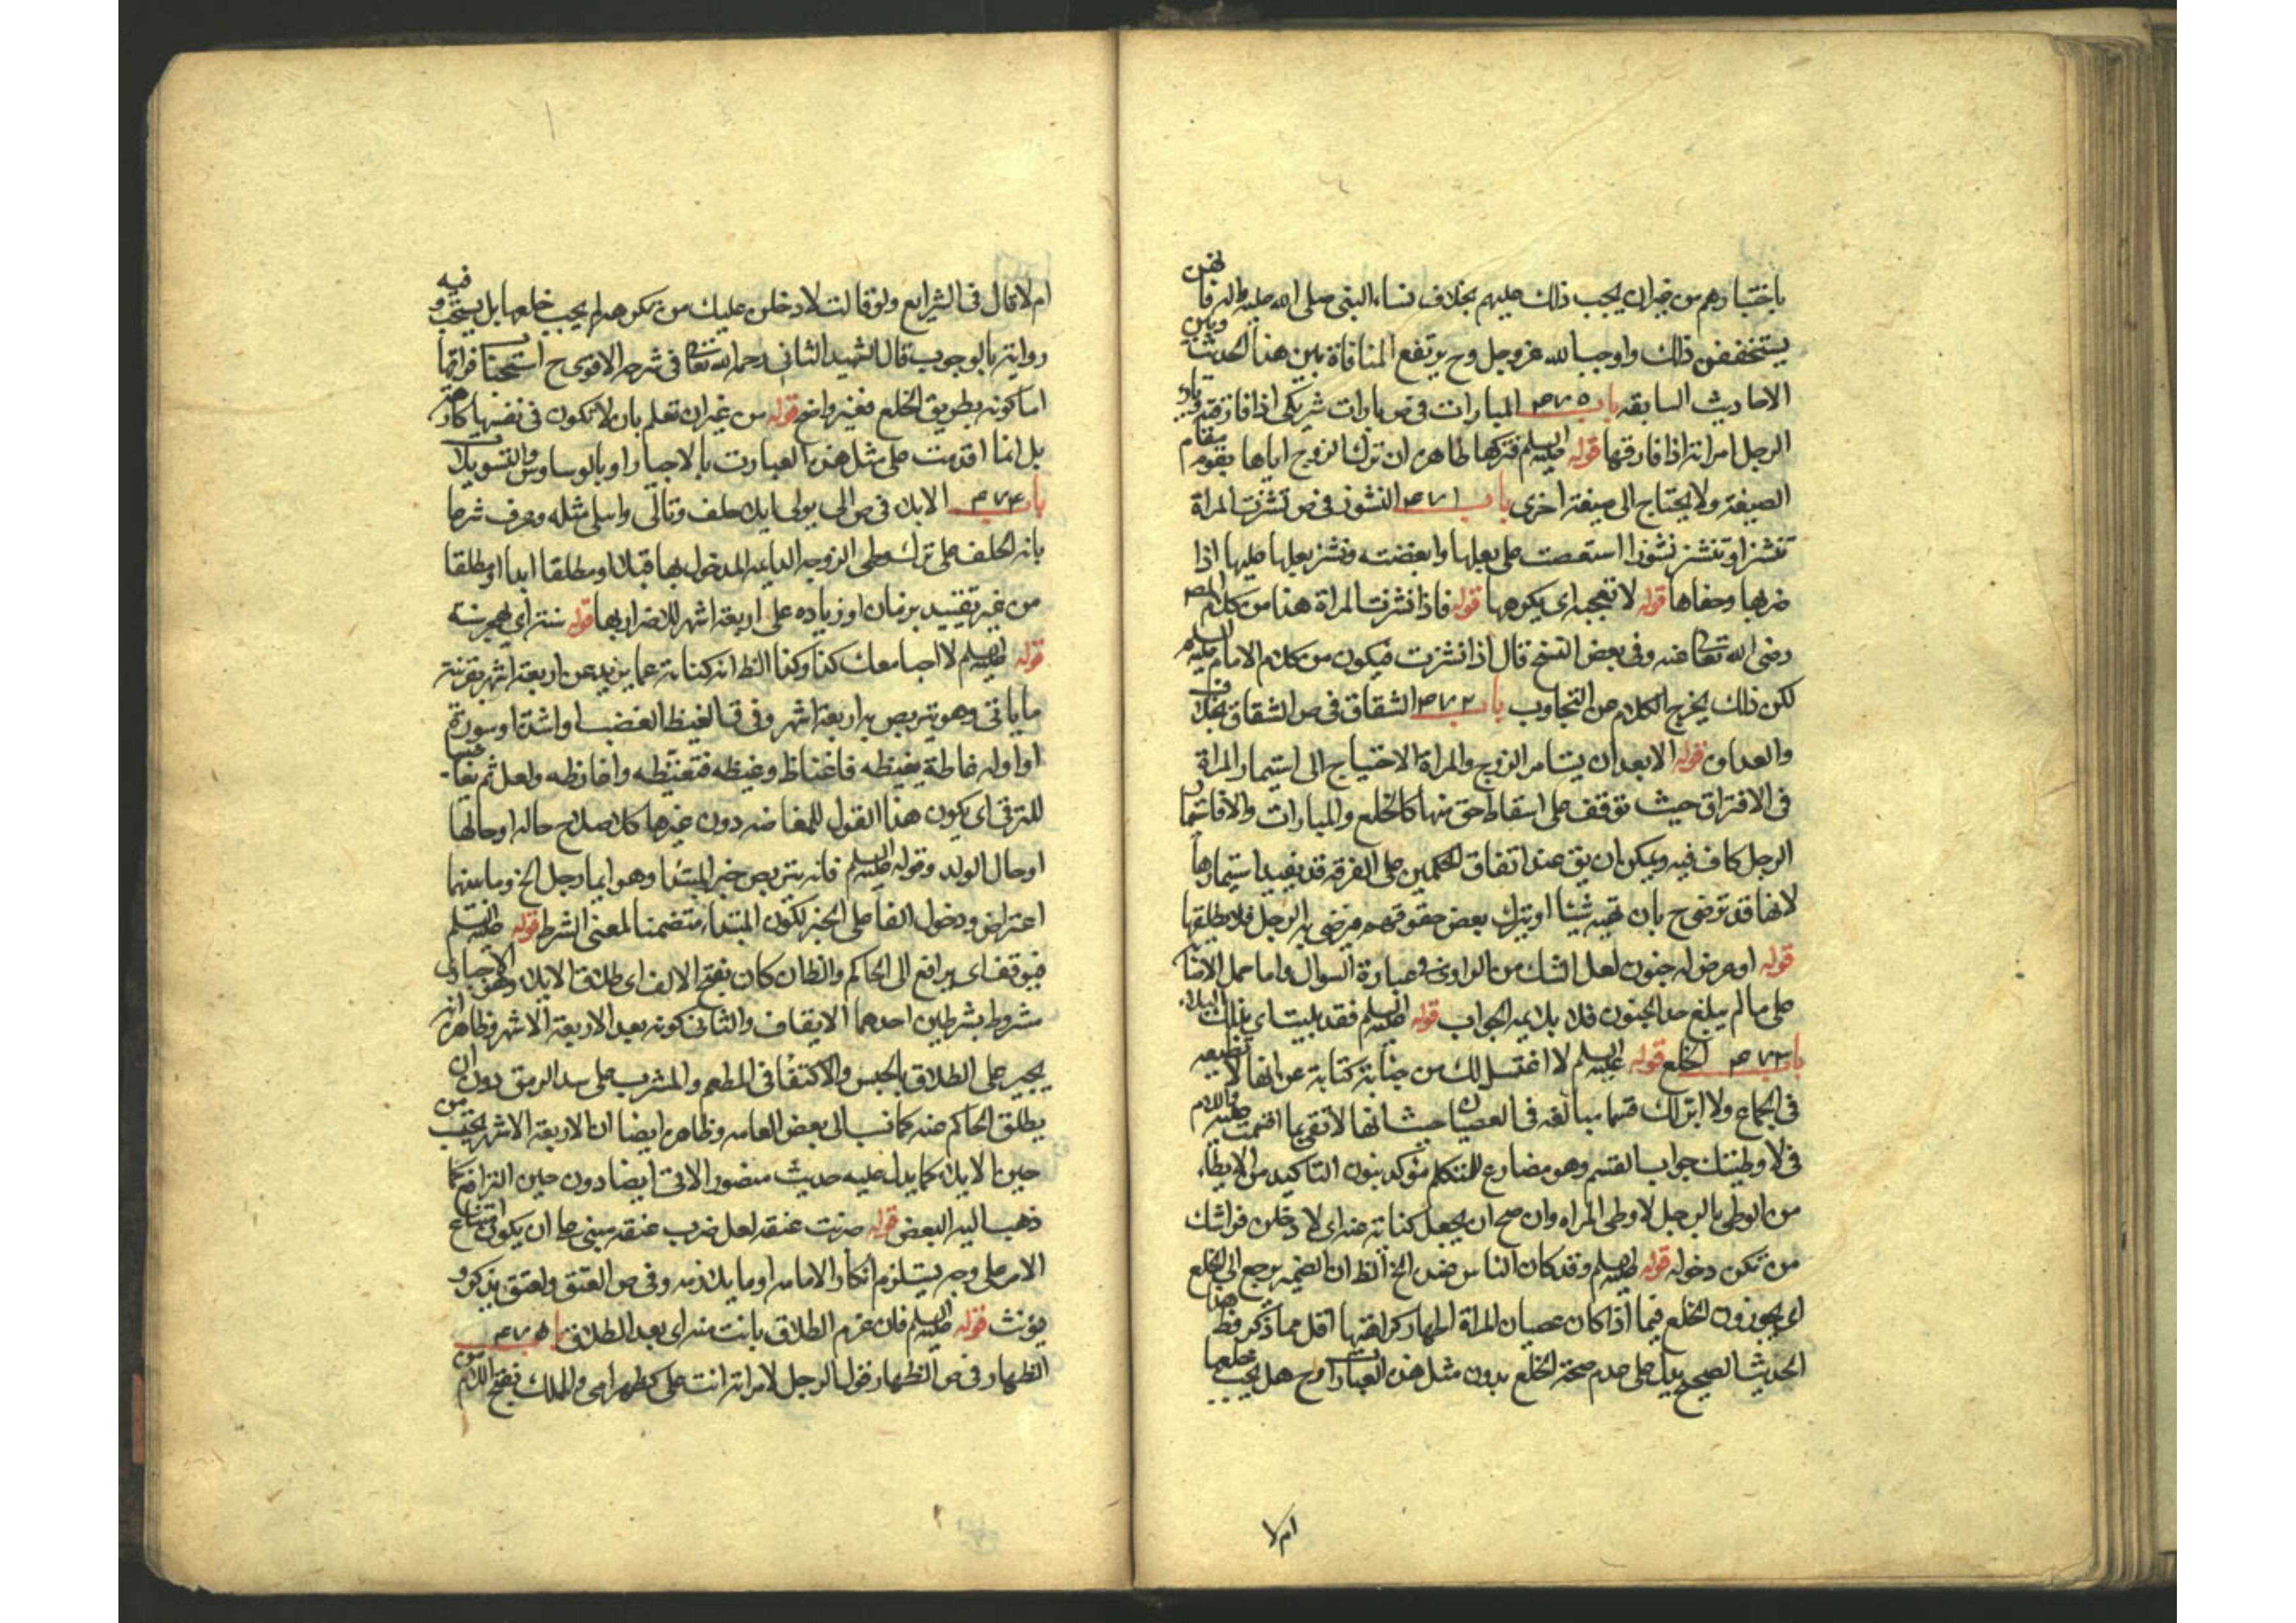 باختيارهم من غير ان يجب ذلك عليهم بخلاف نساء النبي صلى الله عليه واله فانهن
يستخففن ذلك واوجب الله عز وجل وح يرتفع المنافاة بين هذا الحديث وبين
الاحاديث السابقه باب المبارات في ص بارات شريكي اذا فارقته وبارء
الرجل امراته اذا فارقها قوله عليه السلم فتركها ظاهره ان ترك الزوج اياها يقوم مقام
الصيغة ولا يحتاج الى صيغة اخرى باب ٣٧١ النشوز في ص نشزت المراة
تنشز او تنشز نشوزا استعصت على بعلها وابغضته ونشز بعلها عليها اذا
ضربها وجفاها قوله لا تعجبه اى يكرهها قوله فاذا نشزت المراة هذا من كلام المص
رضى الله تعالى عنه وفي بعض النسخ قال اذا نشزت فيكون من كلام الامام عليه السلم
لكن ذلك يخرج الكلام عن التجاوب باب ٣٧٢ الشقاق في ص الشقاق الخلاف
والعداوة قوله الا بعد ان يستامر الزوج والمراة الاحتياج الى استيمار المراة
في الافتراق حيث توقف على اسقاط حق منها كالخلع والمبارات والا فاستيمار
الرجل كاف فيه ويمكن ان يق عند اتفاق الحكمين على الفرقة قد يفيد استيمارها
لانها قد ترضى ح بان تهبه شيئا او بترك بعض حقوقها فيرضى به الرجل فلا يطلقها
قوله او عرض له جنون لعل الشك من الراوى في عبارة السوال واما حمل
على ما لم يبلغ حد الجنون فلا يلايمه الجواب قوله عليه السلم فقد بليت اى بذلك البلاء
باب ٣٧٣ الخلع قوله عليه السلم لا اغتسل لك من جنابة كناية عن انها لا تطيعه
في الجماع ولا ابر لك قسما مبالغه في العصيان حيث انها لا تفى بما اقسمت عليه واللام
في لاوطينك جواب القسم وهو مضارع للمتكلم مؤكد بنون التاكيد من الايطاء
من الوطى بالرجل لا وطى المراه وان صح ان يجعل كناية عنه اى لا دخلن فراشك
من تكره دخوله قوله عليه السلم وقد كان الناس عنده الخ الظ ان الضمير يرجع الى الخلع
اى يجوزون الخلع فيما اذا كان عصيان المراة اظهار كراهتها اقل مما ذكر فظ هذا
الحديث الصحيح يدل على عدم صحة الخلع بدون مثل هذه العبارات وح هل يجب خلعها
ام لا
ام لا قال في الشرايع ولو قالت لادخلن عليك من تكرهه لم يجب خلعها بل يستحب وفيه
رواية بالوجوب قال الشهيد الثانى رحمه الله تعالى في شرحه الاقوى ح استحباب فراقها
اما كونه بطريق الخلع فغير واضح قوله من غير ان تعلم بان لا تكون في نفسها كارهة
بل انما اقدمت على مثل هذه العبارت بالاجبار او بالوساوس والتسويلات
باب ٣٧٤ الايلاء في ص الى يولى ايلاء حلف وتالى واسلى مثله وعرف شرعا
بانه الحلف على ترك وطى الزوجه الدايمه المدخول بها قبلا او مطلقا ابدا او مطلقا
من غير تقييد بزمان او زياده على اربعة اشهر للاضرار بها قوله سنة اى هجر سنة
قوله عليه السلم لا اجامعك كذا وكذا الظ انه كناية عما يزيد عن اربعة اشهر بقرينة
ما ياتى وهو يتربص به اربعة اشهر وفي ق الغيظ الغضب او اشده او سورته
او اوله غاظه يغيظه فاغتاظ وغيظه فتغيظه واغاظه ولعل ثم يغا-
للترقى اى يكون هذا القول للمغاضبه دون غيرها كلاصلاح حاله او حالها
او حال الولد وقوله عليه السلم فانه يتربص خبر المبتدا وهو ايما رجل الخ وما بينهما
اعتراض ودخول الفا على الخبر لكون المبتداء متضمنا لمعنى الشرط قوله عليه السلم
فيوقف اى يرافع الى الحاكم والظ ان كان بفتح الالف اى طلاق الايلاء وهو الاجبارى
مشروط بشرطين احدهما الايقاف والثانى كونه بعد الاربعة الاشهر وظاهره انه
يجبر على الطلاق بالحبس والاكتفا في المطعم والمشرب على سد الرمق دون ان
يطلق الحاكم عنه كما نسب الى بعض العامه وظاهره ايضا ان الاربعة الاشهر يحسب من
حين الايلاء كما يدل عليه حديث منصور الاتى ايضا دون حين الترافع كما
ذهب اليه البعض قوله ضربت عنقه لعل ضرب عنقه مبنى على ان يكون امتناع
الامر على وجه يستلزم انكار الامامه او ما يلازمه وفي ص العنق والعنق يذكر و
يؤنث قوله عليه السلم فان عزم الطلاق بانت منه اى بعد الطلاق باب ٣٧٥
الظهار في ص الظهار قول الرجل لامراته انت على كظهر امى والملك بفتح اللام